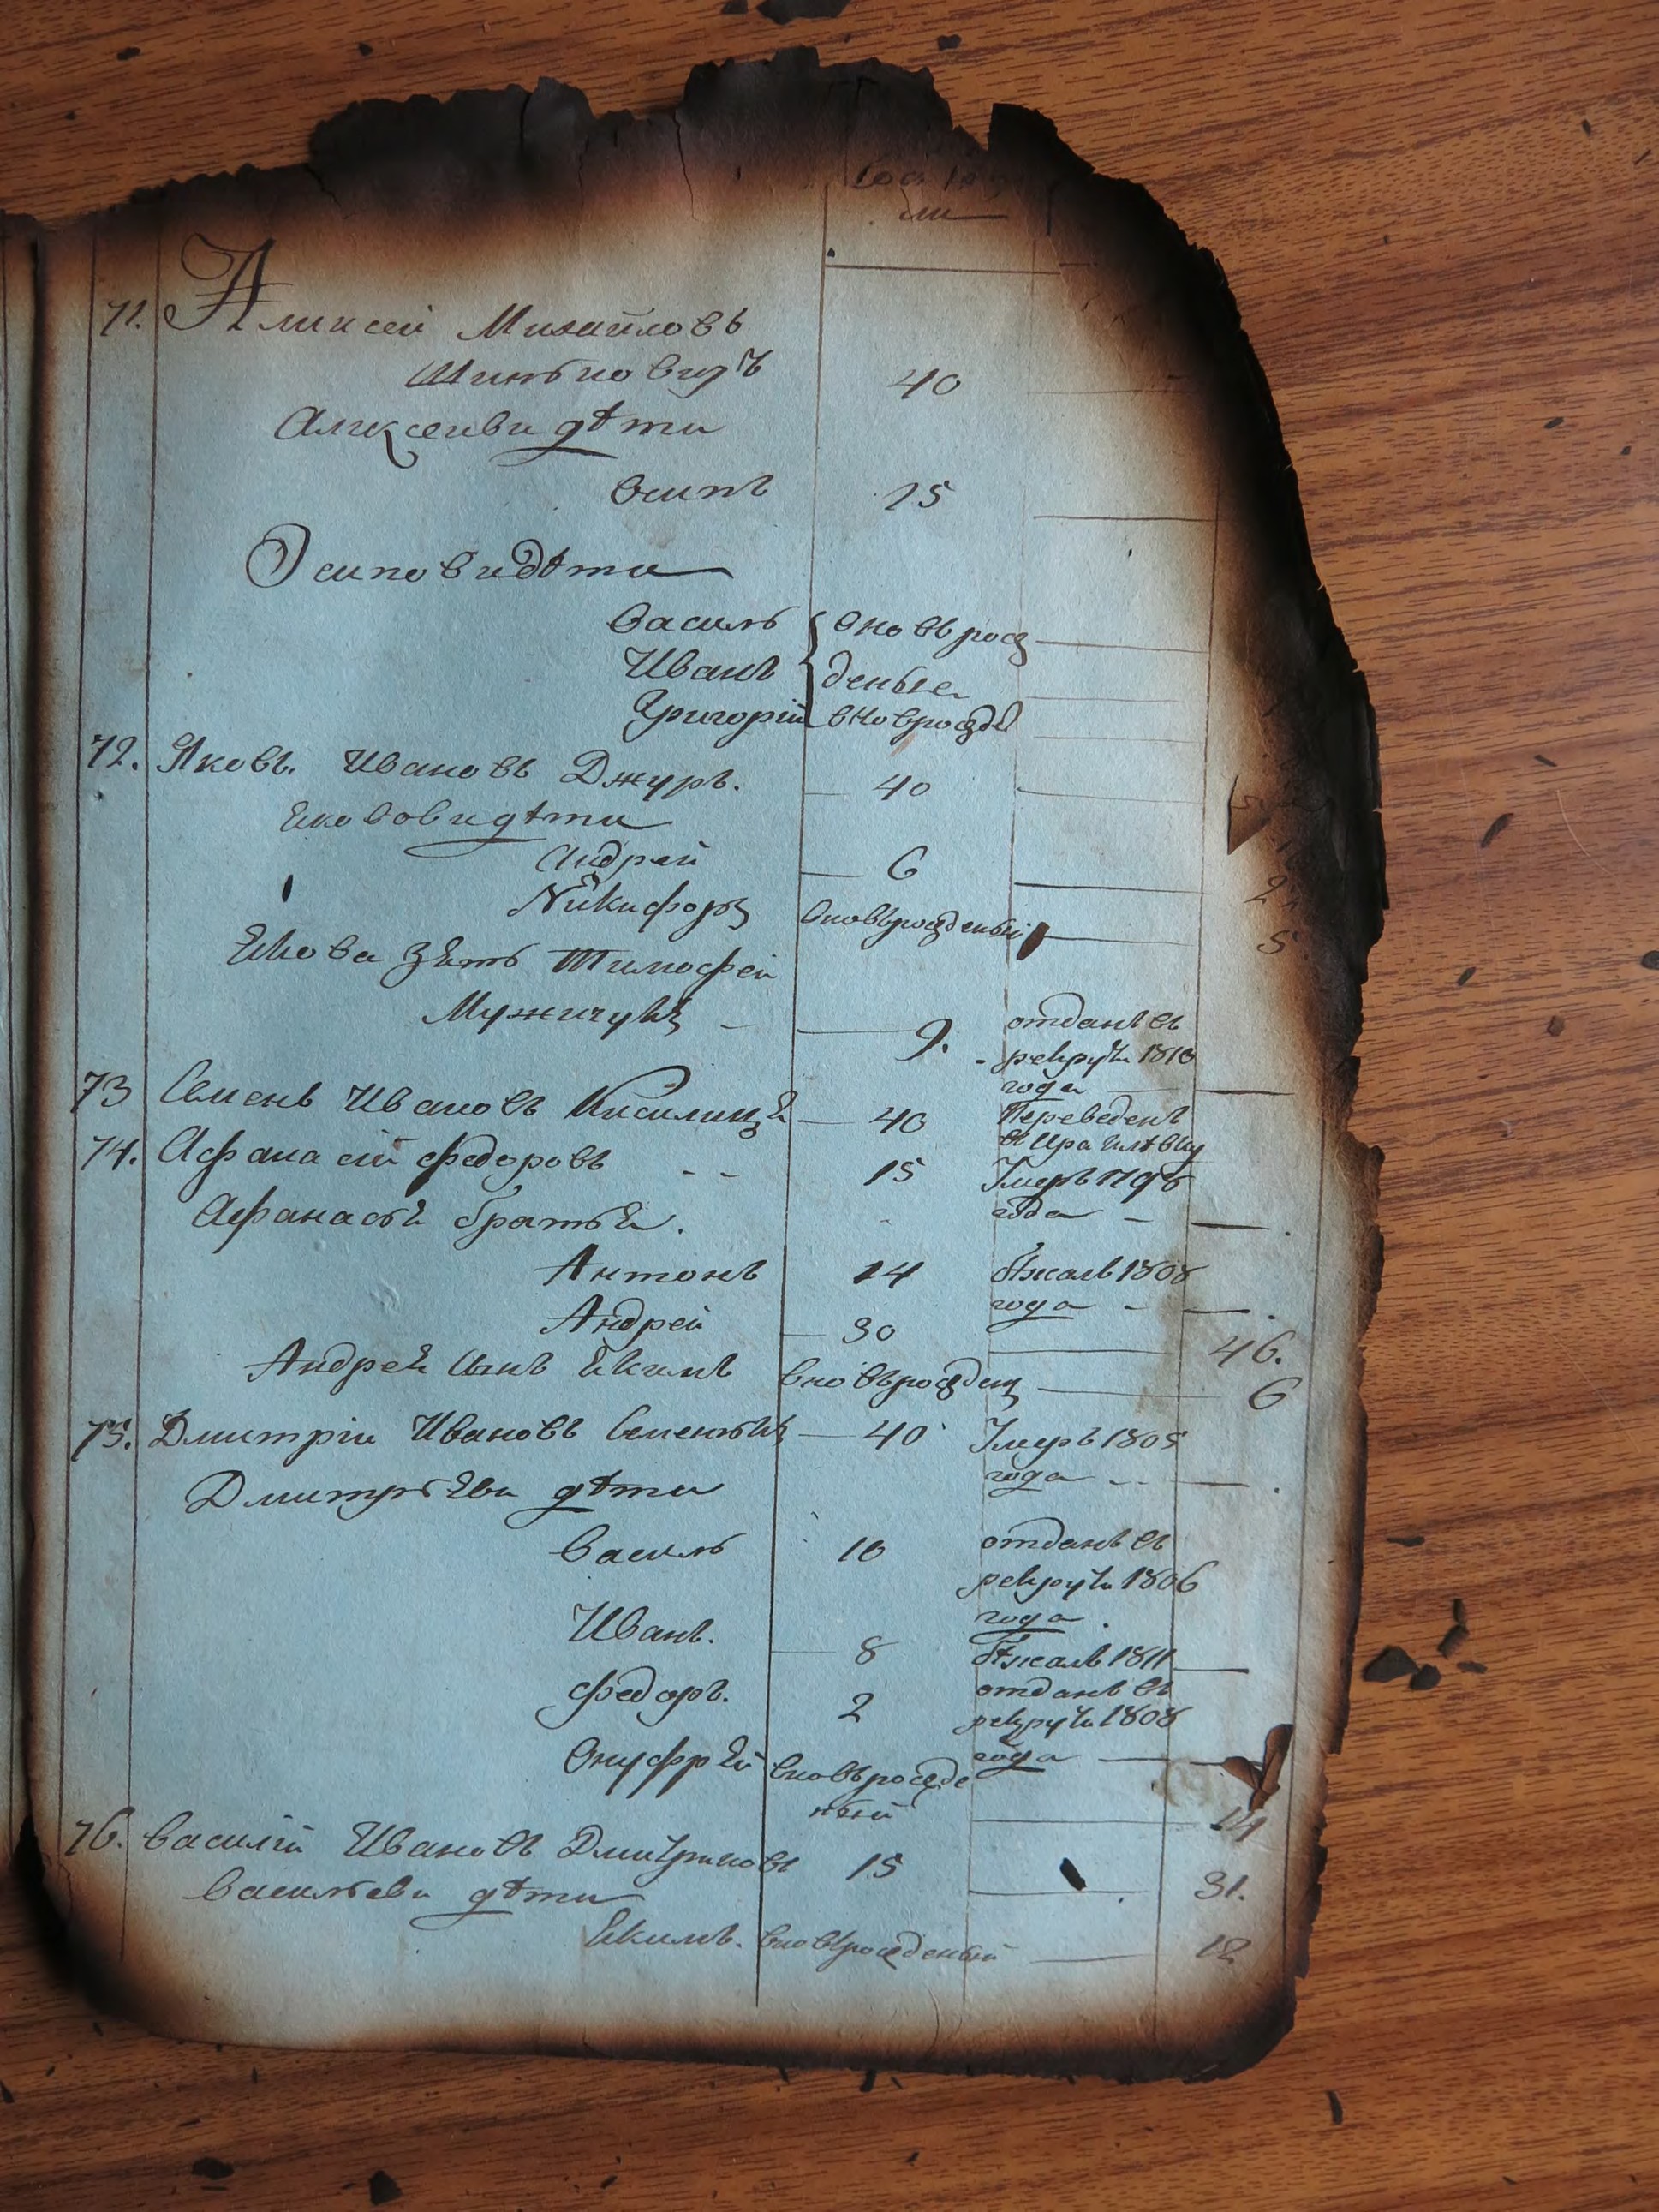 ли
71. Аликсей Михайловъ
40
Аликсеиви дѣти
Осипъ 15
Осипови дѣти
Василь вновь рож
Иванъ деные
Григорій вновърожде
72. Яковъ Ивановъ Джуръ. 40
Екобови дѣти
Андрей 6
Никифоръ вновьрожденый 5
Екова зеть Тимофей
Мужичукъ 9. отданъ въ
рекруты 1810
года
73 Семенъ Ивановъ Кисилица 40 Переведенъ
74. Афанасій Федоровъ 15 Умеръ 1798
года
Афанасья братья.
Антонъ 14 бѣжалъ 1808
года
Андрей 30 46.
Андрея сынъ Екимъ вновърожден 6
75. Дмитрій Ивановъ Семенюкъ 40 Умеръ 1805
года
Дмитрѣеви дѣти
Василь 10 отданъ въ
рекруты 1806
года
Иванъ. 8 бѣжалъ 1811
Федоръ. 2 отданъ въ
рекруты 1808
года
Онуфрей вновърожде
ный 14
76. Василій Ивановъ 15 31.
Васильеви дѣти
Екимъ. вновърожденый 12